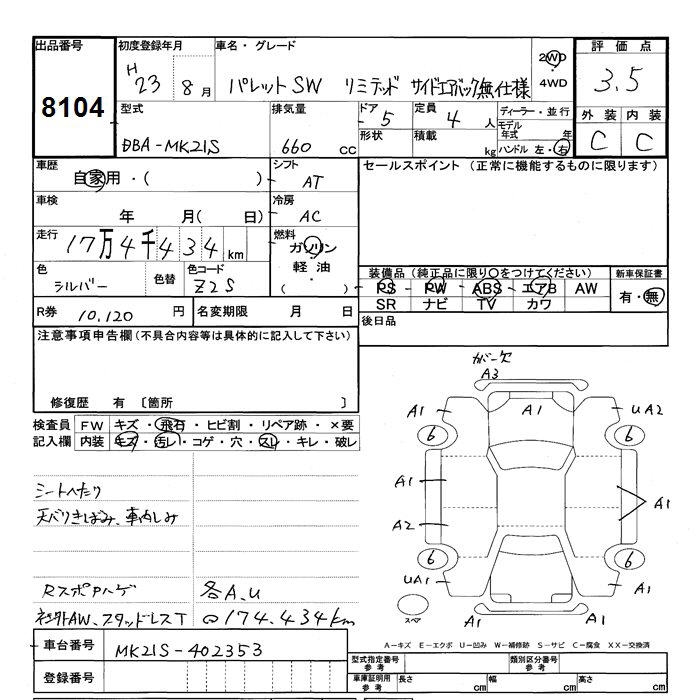 出品番号
8104
初度登録年月
H 23 8 月
車名・グレード
パレットSW リミテッド サイドエアバック無仕様
2WD
4WD
評価点
3.5
外装 内装
C C
型式
DBA-MK21S
排気量
660 cc
ドア
5
定員
4 人
形状
積載
kg
ディーラー・並行
モデル年式 年
ハンドル 左・右
車歴
自家用・( )
シフト
AT
車検
年 月( 日)
冷房
AC
走行
17万4千434 km
燃料
ガソリン
・
軽油
・
( )
色
シルバー
色替
色コード
Z2S
R券 10,120 円
名変期限 月 日
セールスポイント (正常に機能するものに限ります)
装備品(純正品に限り○をつけてください)
PS PW ABS エアB AW
SR ナビ TV カワ
新車保証書
有・無
後日品
注意事項申告欄(不具合内容等は具体的に記入して下さい)
修復歴 有 〔箇所 〕
検査員記入欄
FW キズ・飛石・ヒビ割・リペア跡・×要
内装 キズ・汚レ・コゲ・穴・スレ・キレ・破レ
シートへたり
天バリきばみ、車内しみ
Rスポアハゲ
各A、U
社外AW、スタッドレスT
174.434km
ガバー欠
A3
A1
A1
UA2
6
6
A1
A1
A2
6
6
UA1
A1
A1
スペア
A-キズ E-エクボ U-凹み W-補修跡 S-サビ C-腐食 XX-交換済
車台番号
MK21S-402353
登録番号
型式指定番号
参考
類別区分番号
参考
車庫証明用
参考
長さ cm
幅 cm
高さ cm